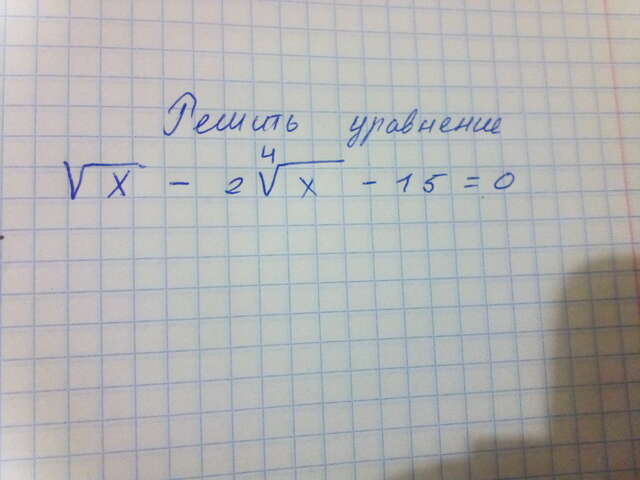 Решить уравнение
√x - 2∜x - 15 = 0